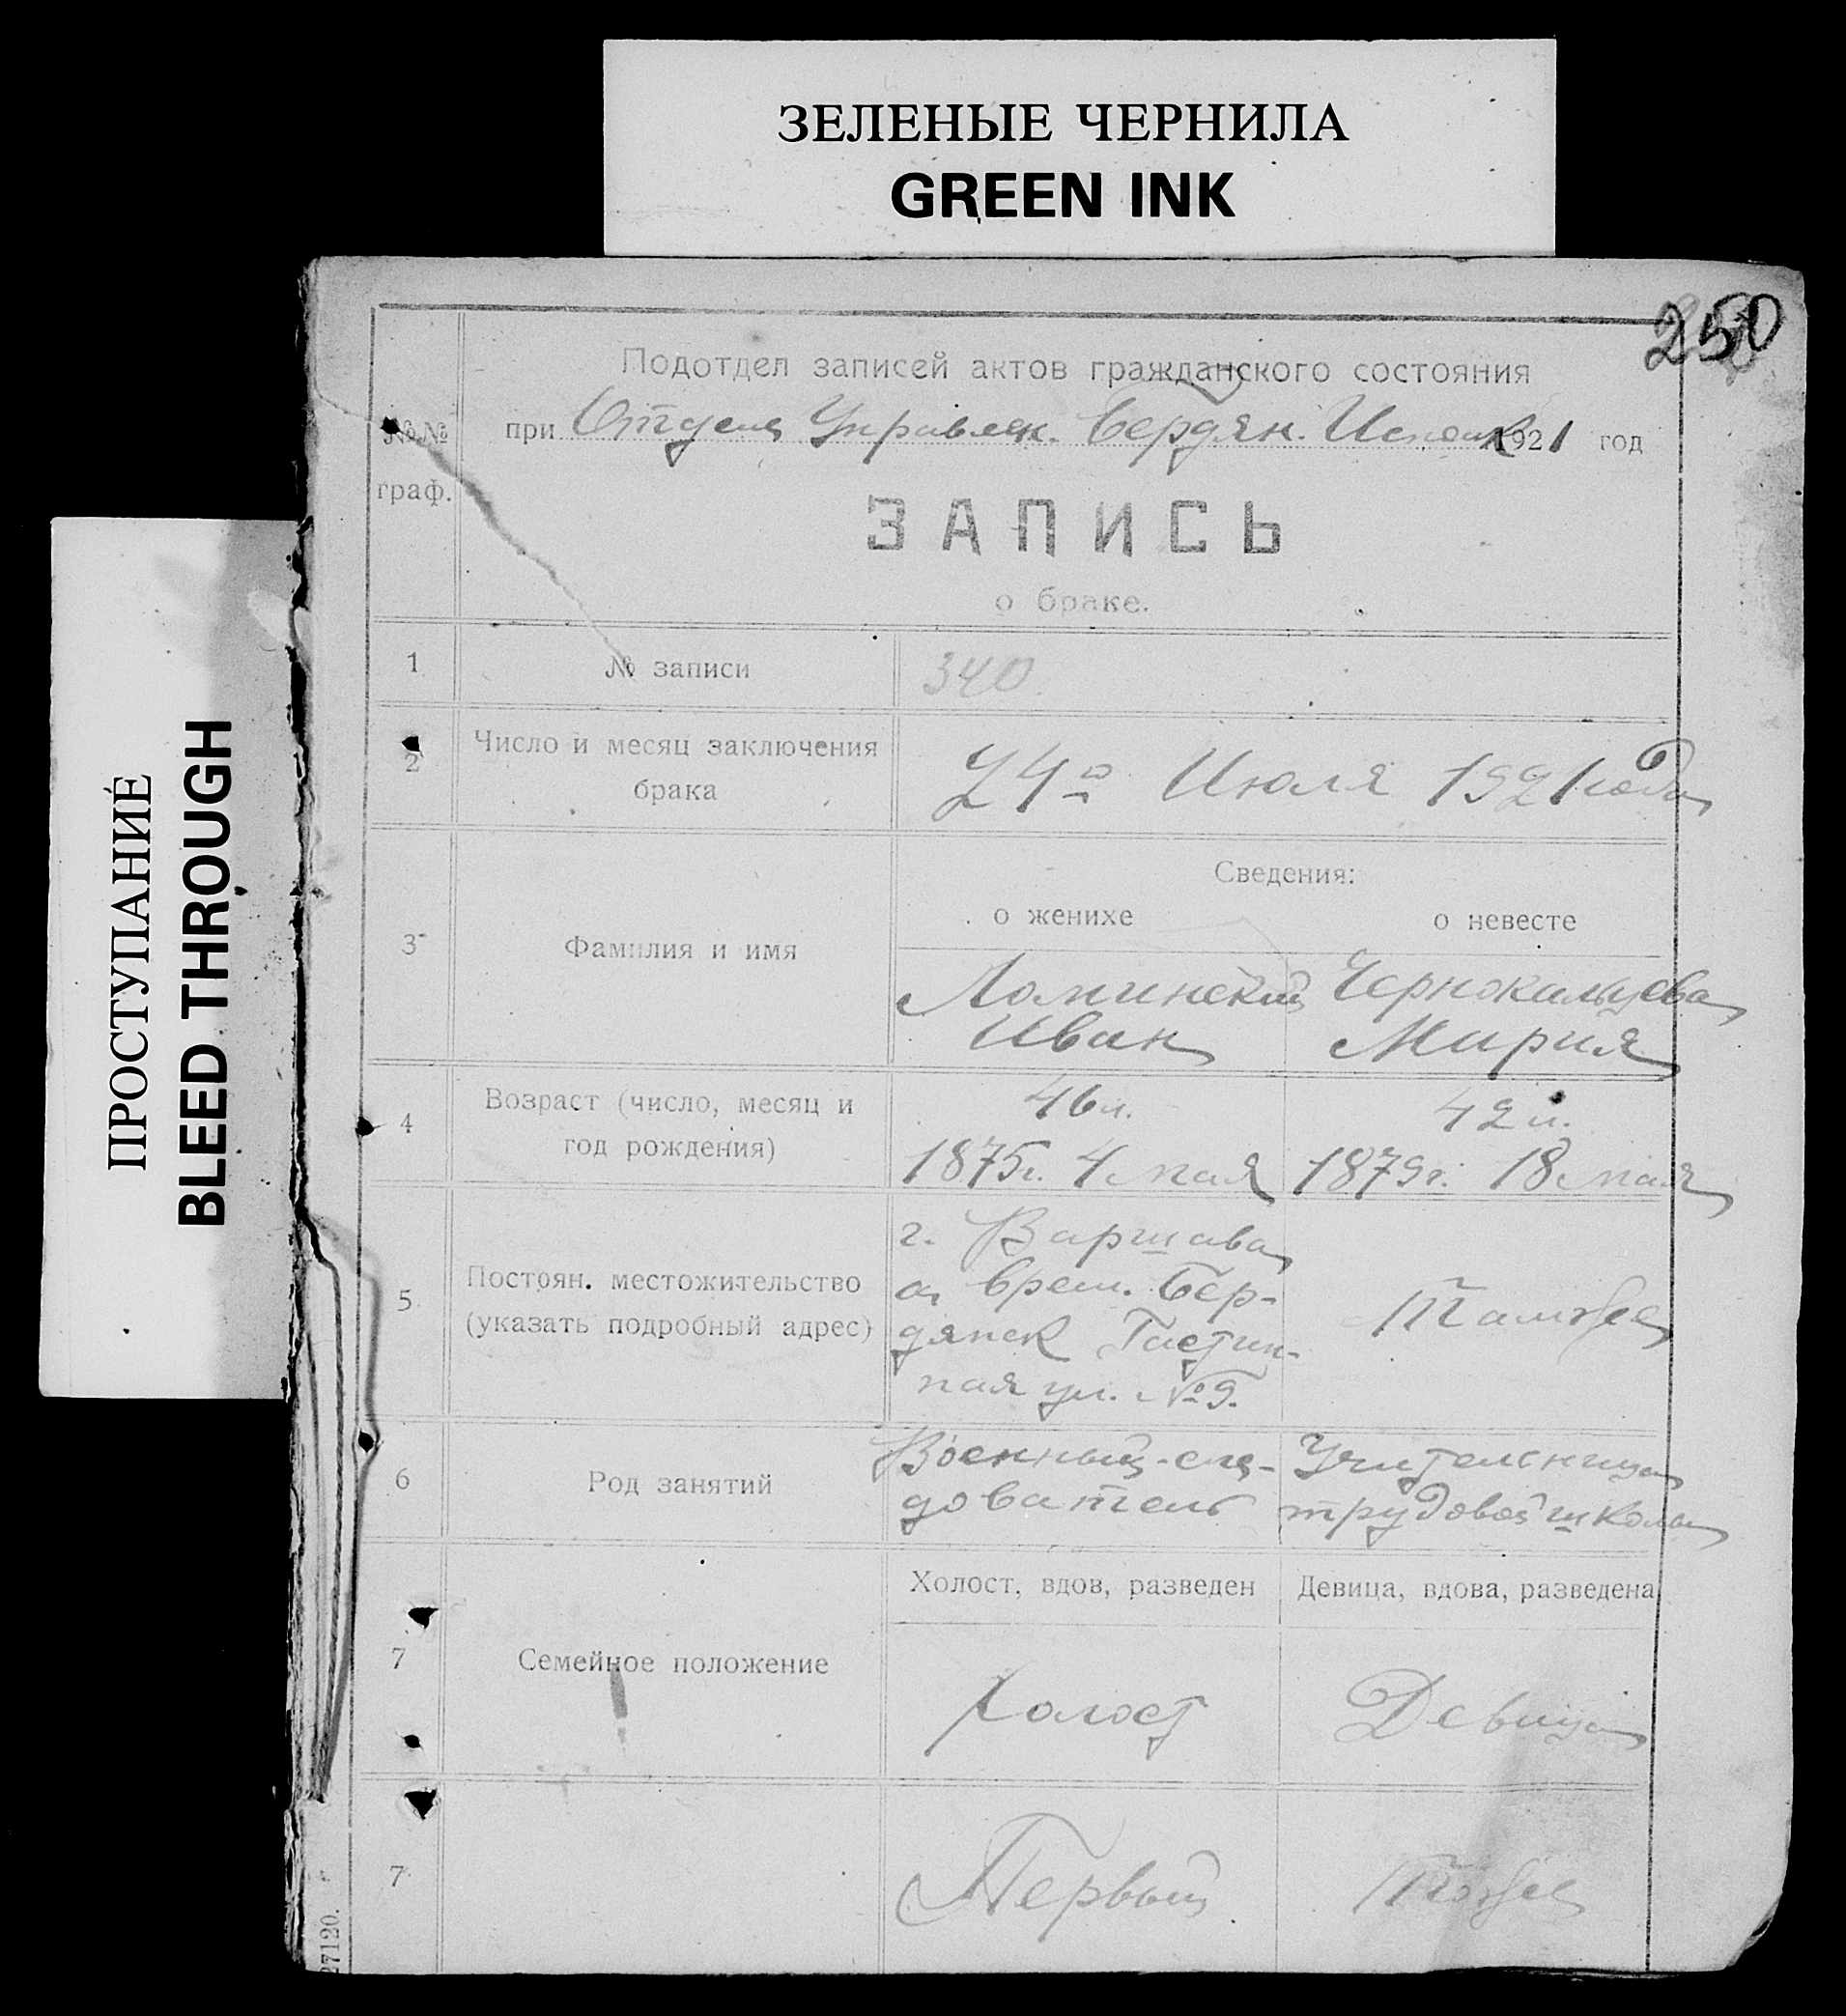 ЗЕЛЕНЫЕ ЧЕРНИЛА
GREEN INK
ПРОСТУПАНИЕ
BLEED THROUGH
250
Подотдел записей актов гражданского состояния
№№ граф.
при Отделе Управлен. Бердян. Исполк 1921 год
ЗАПИСЬ
о браке.
1 № записи 340.
2 Число и месяц заключения брака
24го Июля 1921 года
Сведения:
о женихе о невесте
3 Фамилия и имя
Ломинский Чернокальцева
Иван Мария
4 Возраст (число, месяц и год рождения)
46 л. 42 л.
1875г. 4 мая 1879г. 18 мая
5 Постоян. местожительство (указать подробный адрес)
г. Варшава
а врем. Бер-
дянск Гастин-
ная ул. №9.
Тамже
6 Род занятий
Военный-сле- Учительница
дователь трудовой школы
Холост, вдов, разведен Девица, вдова, разведена
7 Семейное положение
Холост Девица
7
Первый Тоже
27120.